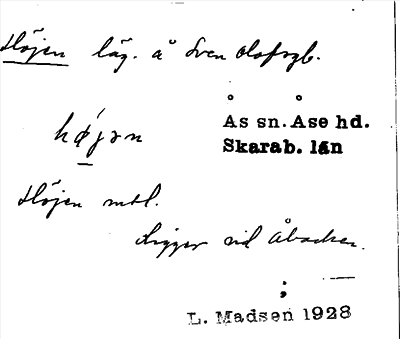 Höjen läg. å Sven Olofsgb.
Ås sn. Åse hd.
Skarab. län
højən
Höjen mtl.
Ligger vid Åbacken.
;
L. Madsen 1928